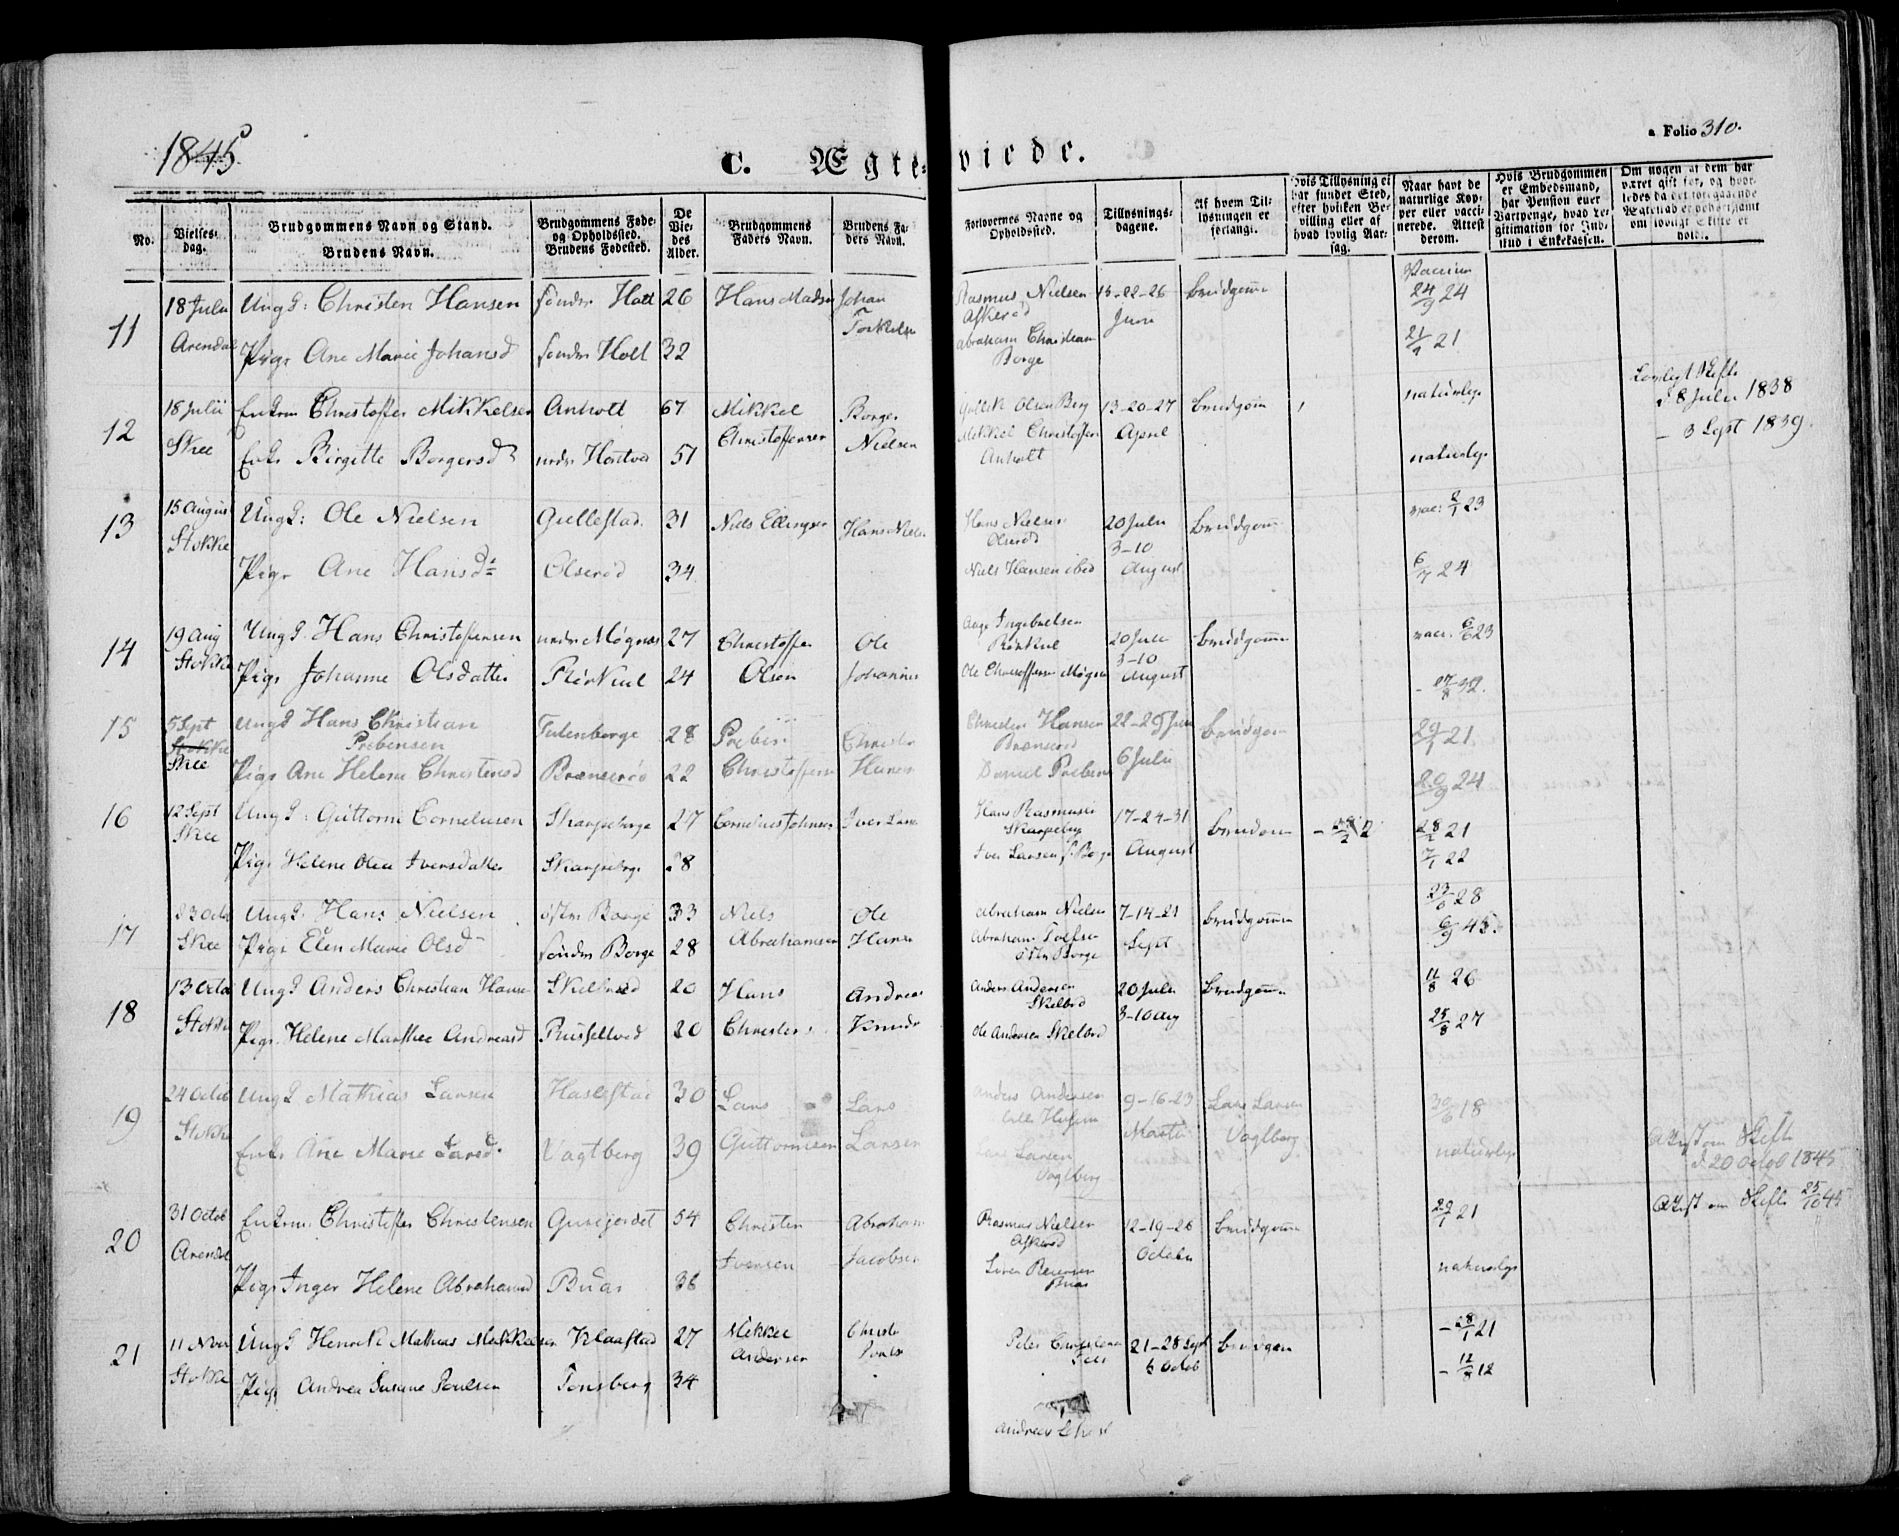 1845
C. Ægte-viede.
a Folio 310.
No.
Vielses-dag.
Brudgommens Navn og Stand.
Brudens Navn.
Brudgommens Føde- og Opholdssted.
Brudens Fødested.
De Viedes Alder.
Brudgommens Faders Navn.
Brudens Faders Navn.
Forlovernes Navne og Opholdssted.
Tillysnings-dagene.
Af hvem Tillysningen er forlangt.
Hvis Tillysning ei har fundet Sted, efter hvilken Bevilling eller af hvad lovlig Aarsag.
Naar havt de naturlige Kopper eller vaccinerede. Attest derom.
Hvis Brudgommen er Embedsmand, har Pension eller Vartpenge, hvad Legitimation for Indskud i Enkekassen.
Om nogen af dem har været gift før, og hvorledes da det foregaaende Ægteskab er ophørt samt om lovligt Skifte er holdt.
11 18 Juli Ung: Christen Hansen Sønder Holt 26 Hans Madsen Johan Rasmus Nielsen 15-22-26 Brudgom 24/9 24
Arendal Pige Ane Marie Johansd Sønder Holt 32 Torkelsen Askerød Juni 21/7 21
Abraham Christian
Borge
12 18 Julii Enkem Christoffer Mikkelsen Anholt 67 Mikkel Borger Gullik Olsen Berg 13-20-27 Brudgom naturlige Lovligt Skifte
d 8 Juli 1838
Skee Enke Birgitte Borgersd nedre Hontved 51 Christoffersen Nielsen Mikkel Christoffersen April naturlige - 3 Sept 1839
Anholt
13 15 August Ung: Ole Nielsen Gullestad 31 Niels Ellingsen Hans Niels Hans Nielsen 20 Juli Brudgom vac: 2/1 23
Stokke Olserød 3-10
Pige Ane Hansd Olserød 34 Niels Hansen ibid August 6/7 24
14 19 Aug Ung: Hans Christoffersen nedre Møgnes 27 Christoffer Ole Aage Ingebretsen 20 Juli Brudgom vac: 6/6 23
Stokke Pige Johanne Olsdatter Rørkiul 24 Olsen Johannes Rørkiul 3-10
Ole Christoffersen Møgnes August - 27/8 32
15 5 Sept Ung Hans Christian Prebensen Fulenborge 28 Preben Christen Christen Hansen 22-29 Juni Brudgom 29/1 21
Skee Brænserød 6 Juli
Pige Ane Helene Christensd Brænserød 22 Christoffersen Hansen Daniel Preben 20/9 24
16 12 Sept Ung: Guttorm Cornelusen Skarpeborge 27 Cornelius Johnsen Iver Lars Hans Rasmusen 17-24-31 Bruden 28/2 21
Skee Skarpeberg
Pige Helene Olea Iversdatter Skarpeberge 28 Iver Larsen August 7/1 22
17 23 Octo Ung: Hans Nielsen østre Borge 33 Niels Ole Abraham Nielsen 7-14-21 Brudgom 23/6 28
Skee Pige Elen Marie Olsd Søndre Borge 28 Abrahamsen Hansen Abraham Tolfsen Sept 6/9 45
østre Borge
18 13 Octo Ung Anders Christian Hansen Skelbred 20 Hans Andreas Anders Andersen 20 Juli Brudgom 11/8 26
Skelbrd
Stokke Pige Helene Marthee Andreasd Russeltved 20 Christens Knuds Ole Andersen Skelbrd 3-10 Aug 25/8 27
19 24 Octob Ung Mathias Larsen Haslestad 30 Lars Lars Anders Andersen 9-16-23 Lars Larsen 30/6 18
Stokke Enke Ane Marie Larsd Vagtberg 39 Guttormsen Larsen Lars Larsen Martii Vagtberg naturlige Attest om Skifte
Vagtberg d 20 Octob 1845
20 31 Octob Enkem: Christoffer Christensen Gurejordet 54 Christen Abraham Rasmus Nielsen 12-19-26 Brudgom 29/1 21 Attest om Skifte 25/10 45
Arendal Askerød October
Pige Inger Helene Abrahamsd Buas 36 Iversen Jacobsen Buas naturlige
21 11 Nov Ung Henrik Mathias Mikkelsen Klaastad 27 Mikkel Christe Peder 21-28 Sept Brudgom - 28/1 21
Andersen Pouls 5 Octob
Stokke Pige Andrea Susane Poulsen Tønsberg 34 - 12/8 12